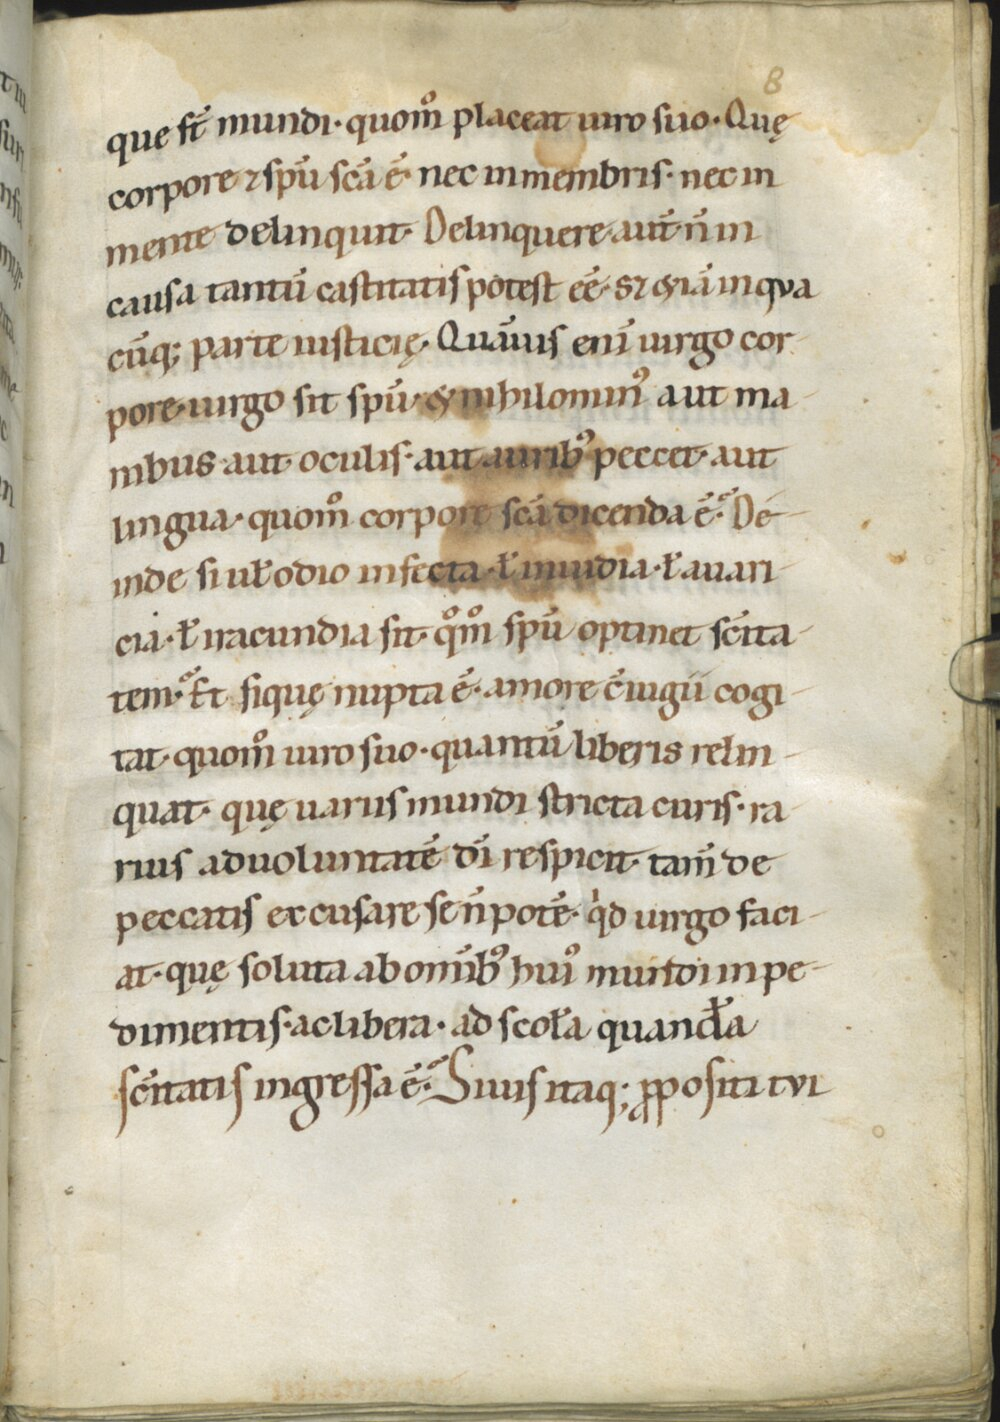 8
que st̄ mundi· quom̊ placeat uiro suo· Quę
corpore ⁊ spū scā ē· nec in membris· nec in
mente delinquit· Delinquere aut̄ n̄ in
causa tantū castitatis potest eē· s⁊ & iā in qua
cūq; parte iusticię· Quāuis enī uirgo cor
pore· uirgo sit spū· & nihilomin᾿ aut ma
nibus aut oculis· aut aurib᾿ peccet· aut
lingua· quom̊ corpore scā dicenda ē? Dé
inde si uł odio infecta· ł inuidia· ł auari
cia· ł iracundia sit· q̊m̊ spū optinet sc̄ita
tem? Et siquę nupta ē· amore c̄iugii cogi
tat· quom̊ uiro suo· quantū liberis relin
quat· quę uariis mundi stricta curis· ra
rius ad uoluntatē dī respicit· tam̄ de
peccatis excusare se n̄ potē· qd̍ uirgo faci
at· quę soluta ab omīb᾿ hui᾿ mundi inpe
dimentis· ac libera· ad scoła quandā
sc̄itatis ingressa ē? Siuis itaq; ꝓpositi tui